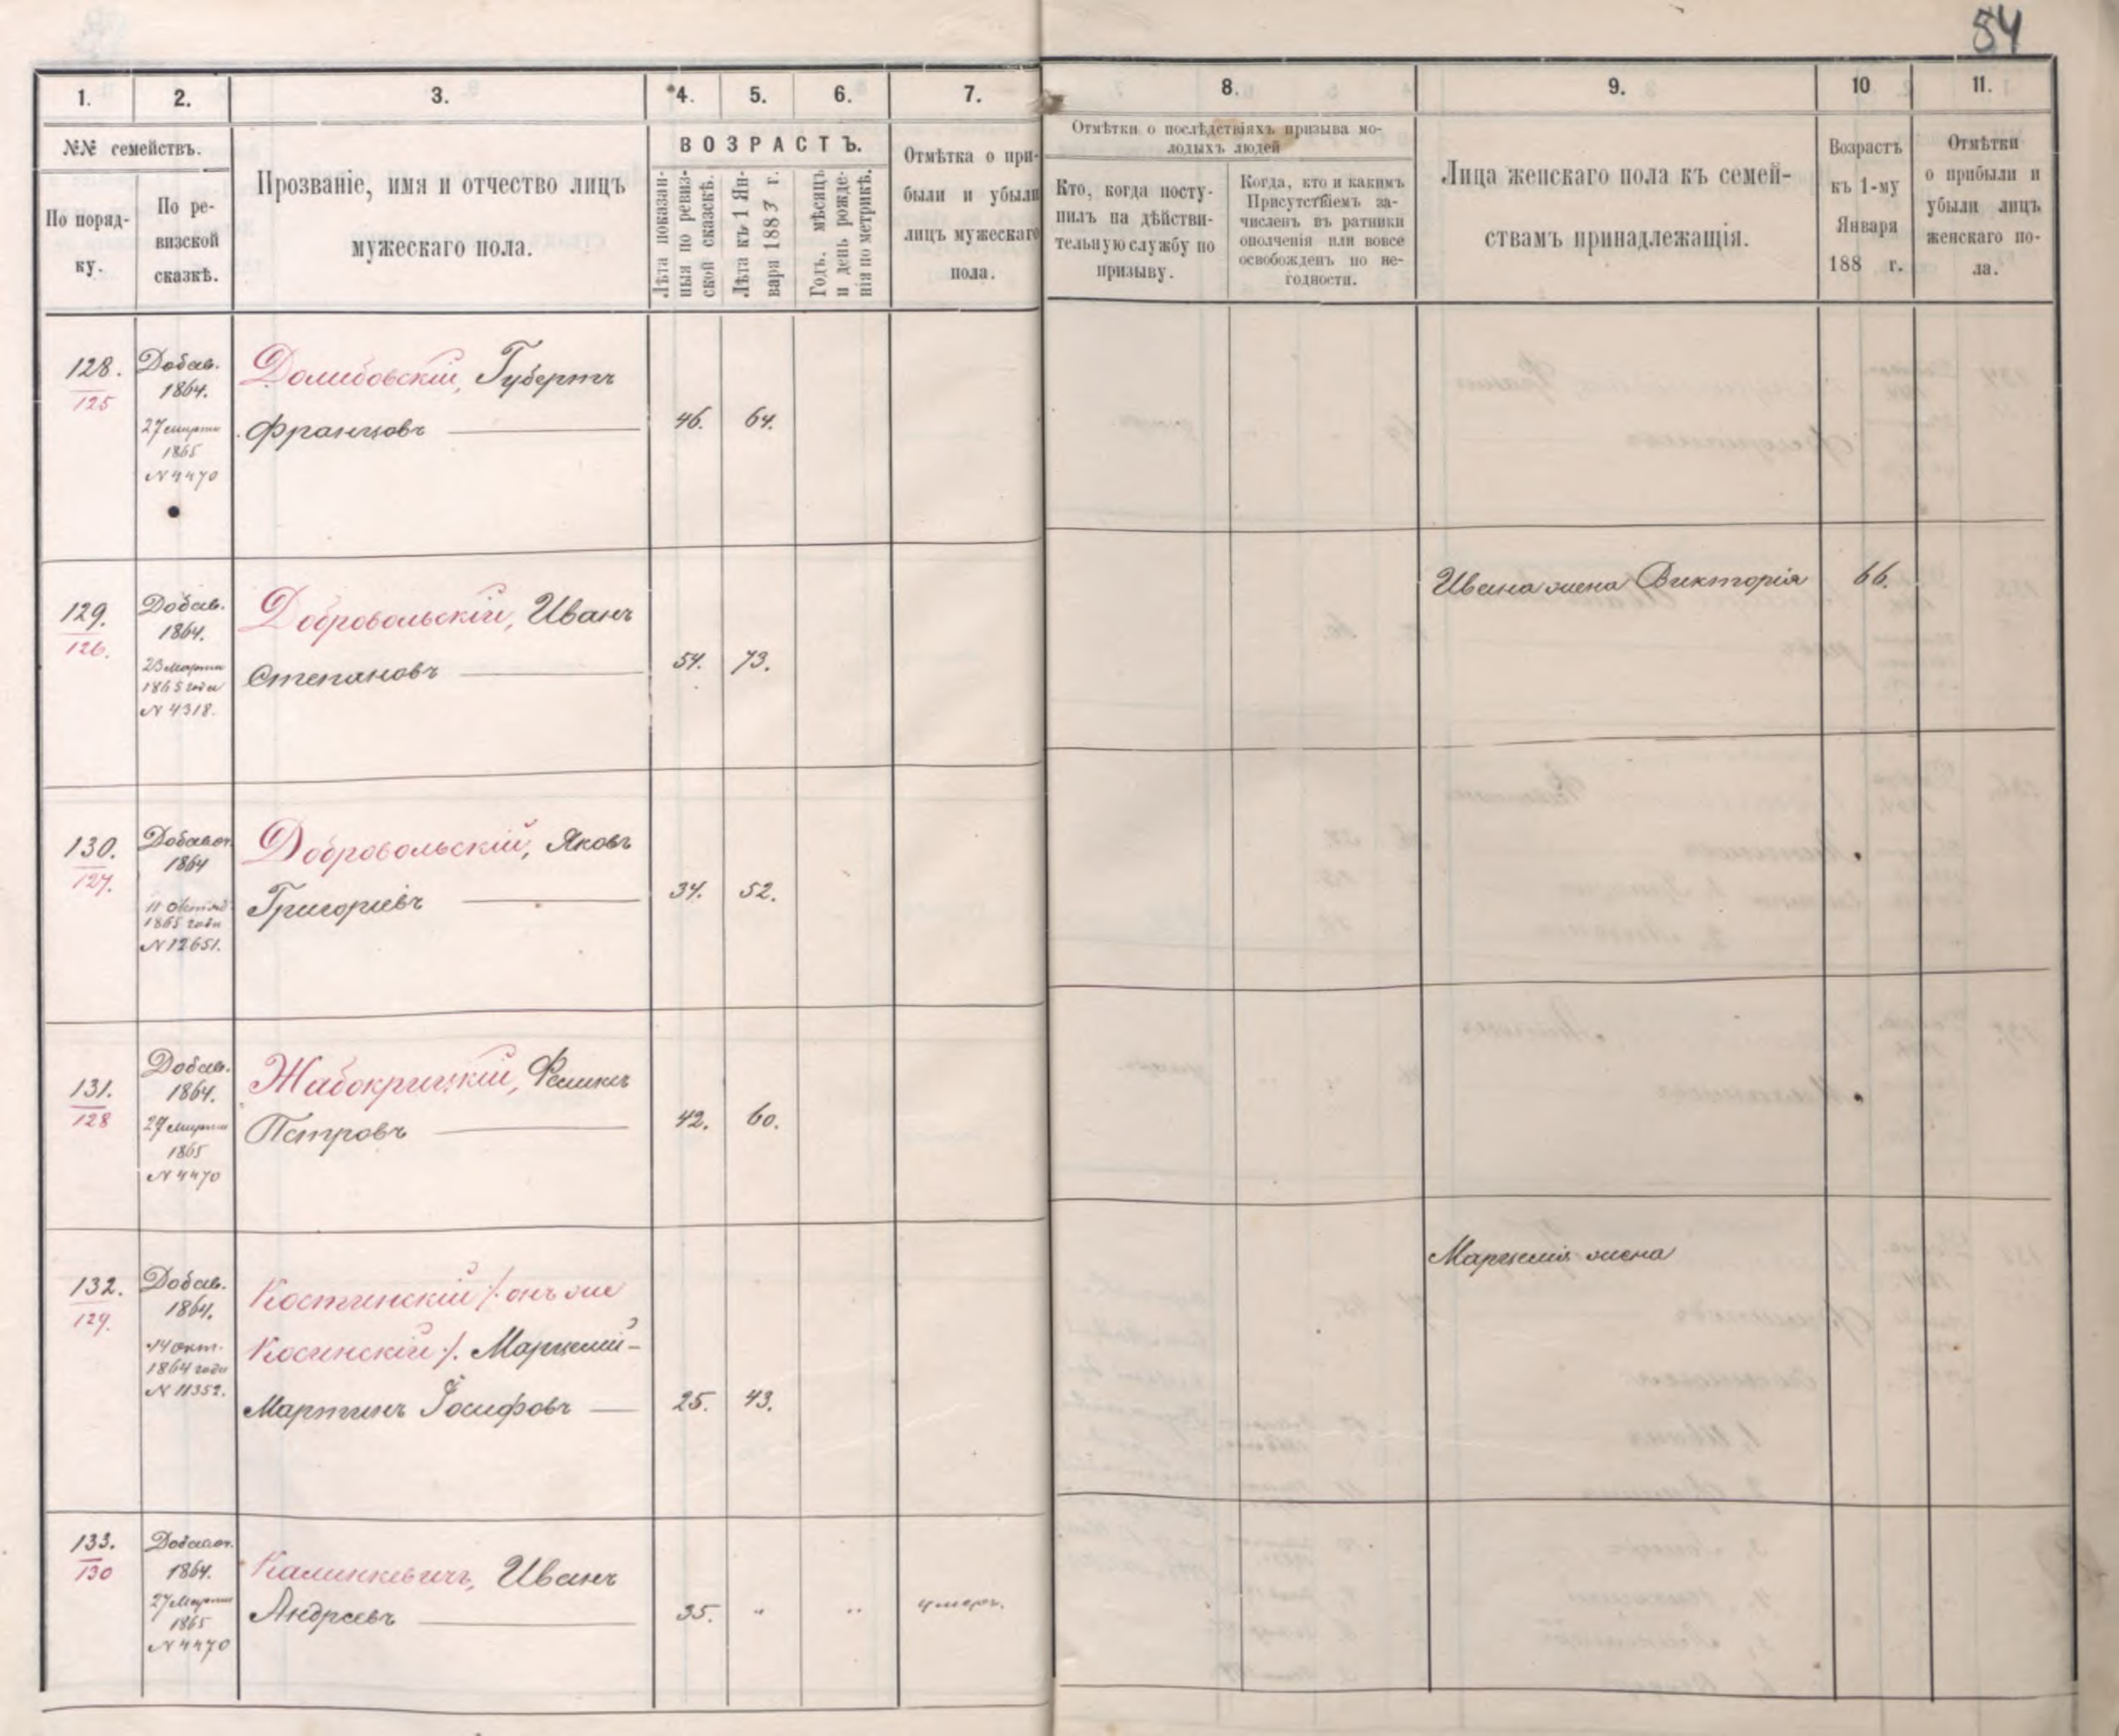 54
1. 2. 3. 4. 5. 6. 7. 8. 9. 10 11.
№№ семействъ.
По поряд-
ку.
По ре-
визской
сказкѣ.
Прозваніе, имя и отчество лицъ
мужескаго пола.
ВОЗРАСТЪ.
Лѣта показан-
ныя по ревиз-
ской сказскѣ.
Лѣта къ 1 Ян-
варя 1883 г.
Годъ, мѣсяцъ
и день рожде-
нія по метрикѣ.
Отмѣтка о при-
были и убыли
лицъ мужескаго
пола.
Отмѣтки о послѣдствіяхъ призыва мо-
лодыхъ людей
Кто, когда посту-
пилъ на дѣйстви-
тельную службу по
призыву.
Когда, кто и какимъ
Присутствіемъ за-
численъ въ ратники
ополченія или вовсе
освобожденъ по не-
годности.
Лица женскаго пола къ семей-
ствамъ принадлежащія.
Возрастъ
къ 1-му
Января
188 г.
Отмѣтки
о прибыли и
убыли лицъ
женскаго по-
ла.
128.
125
Добав.
1864.
27 марта
1865
N 4470
Долибовскій, Губертъ
Францовъ
46. 64.
129.
126.
Добав.
1864.
23 марта
1865 года
N 4318.
Добровольскій, Иванъ
Степановъ
54. 73.
Ивана жена Викторія 66.
130.
127.
Добавоч.
1864
11 Октяб
1865 года
N 12651.
Добровольскій, Яковъ
Григорьевъ
34. 52.
131.
128
Добав.
1864.
27 марта
1865
N 4470
Жабокрицкій, Феликсъ
Петровъ
42. 60.
132.
129.
Добав.
1864.
14 окт.
1864 года
N 11352.
Костинскій /. онъ же
Косинскій ./. Марцелій-
Мартинъ Іосифовъ
25. 43.
Марцелія жена
133.
130
Добавоч.
1864.
27 Марта
1865
N 4470
Калинкевичъ, Иванъ
Андреевъ
35. " " умеръ.